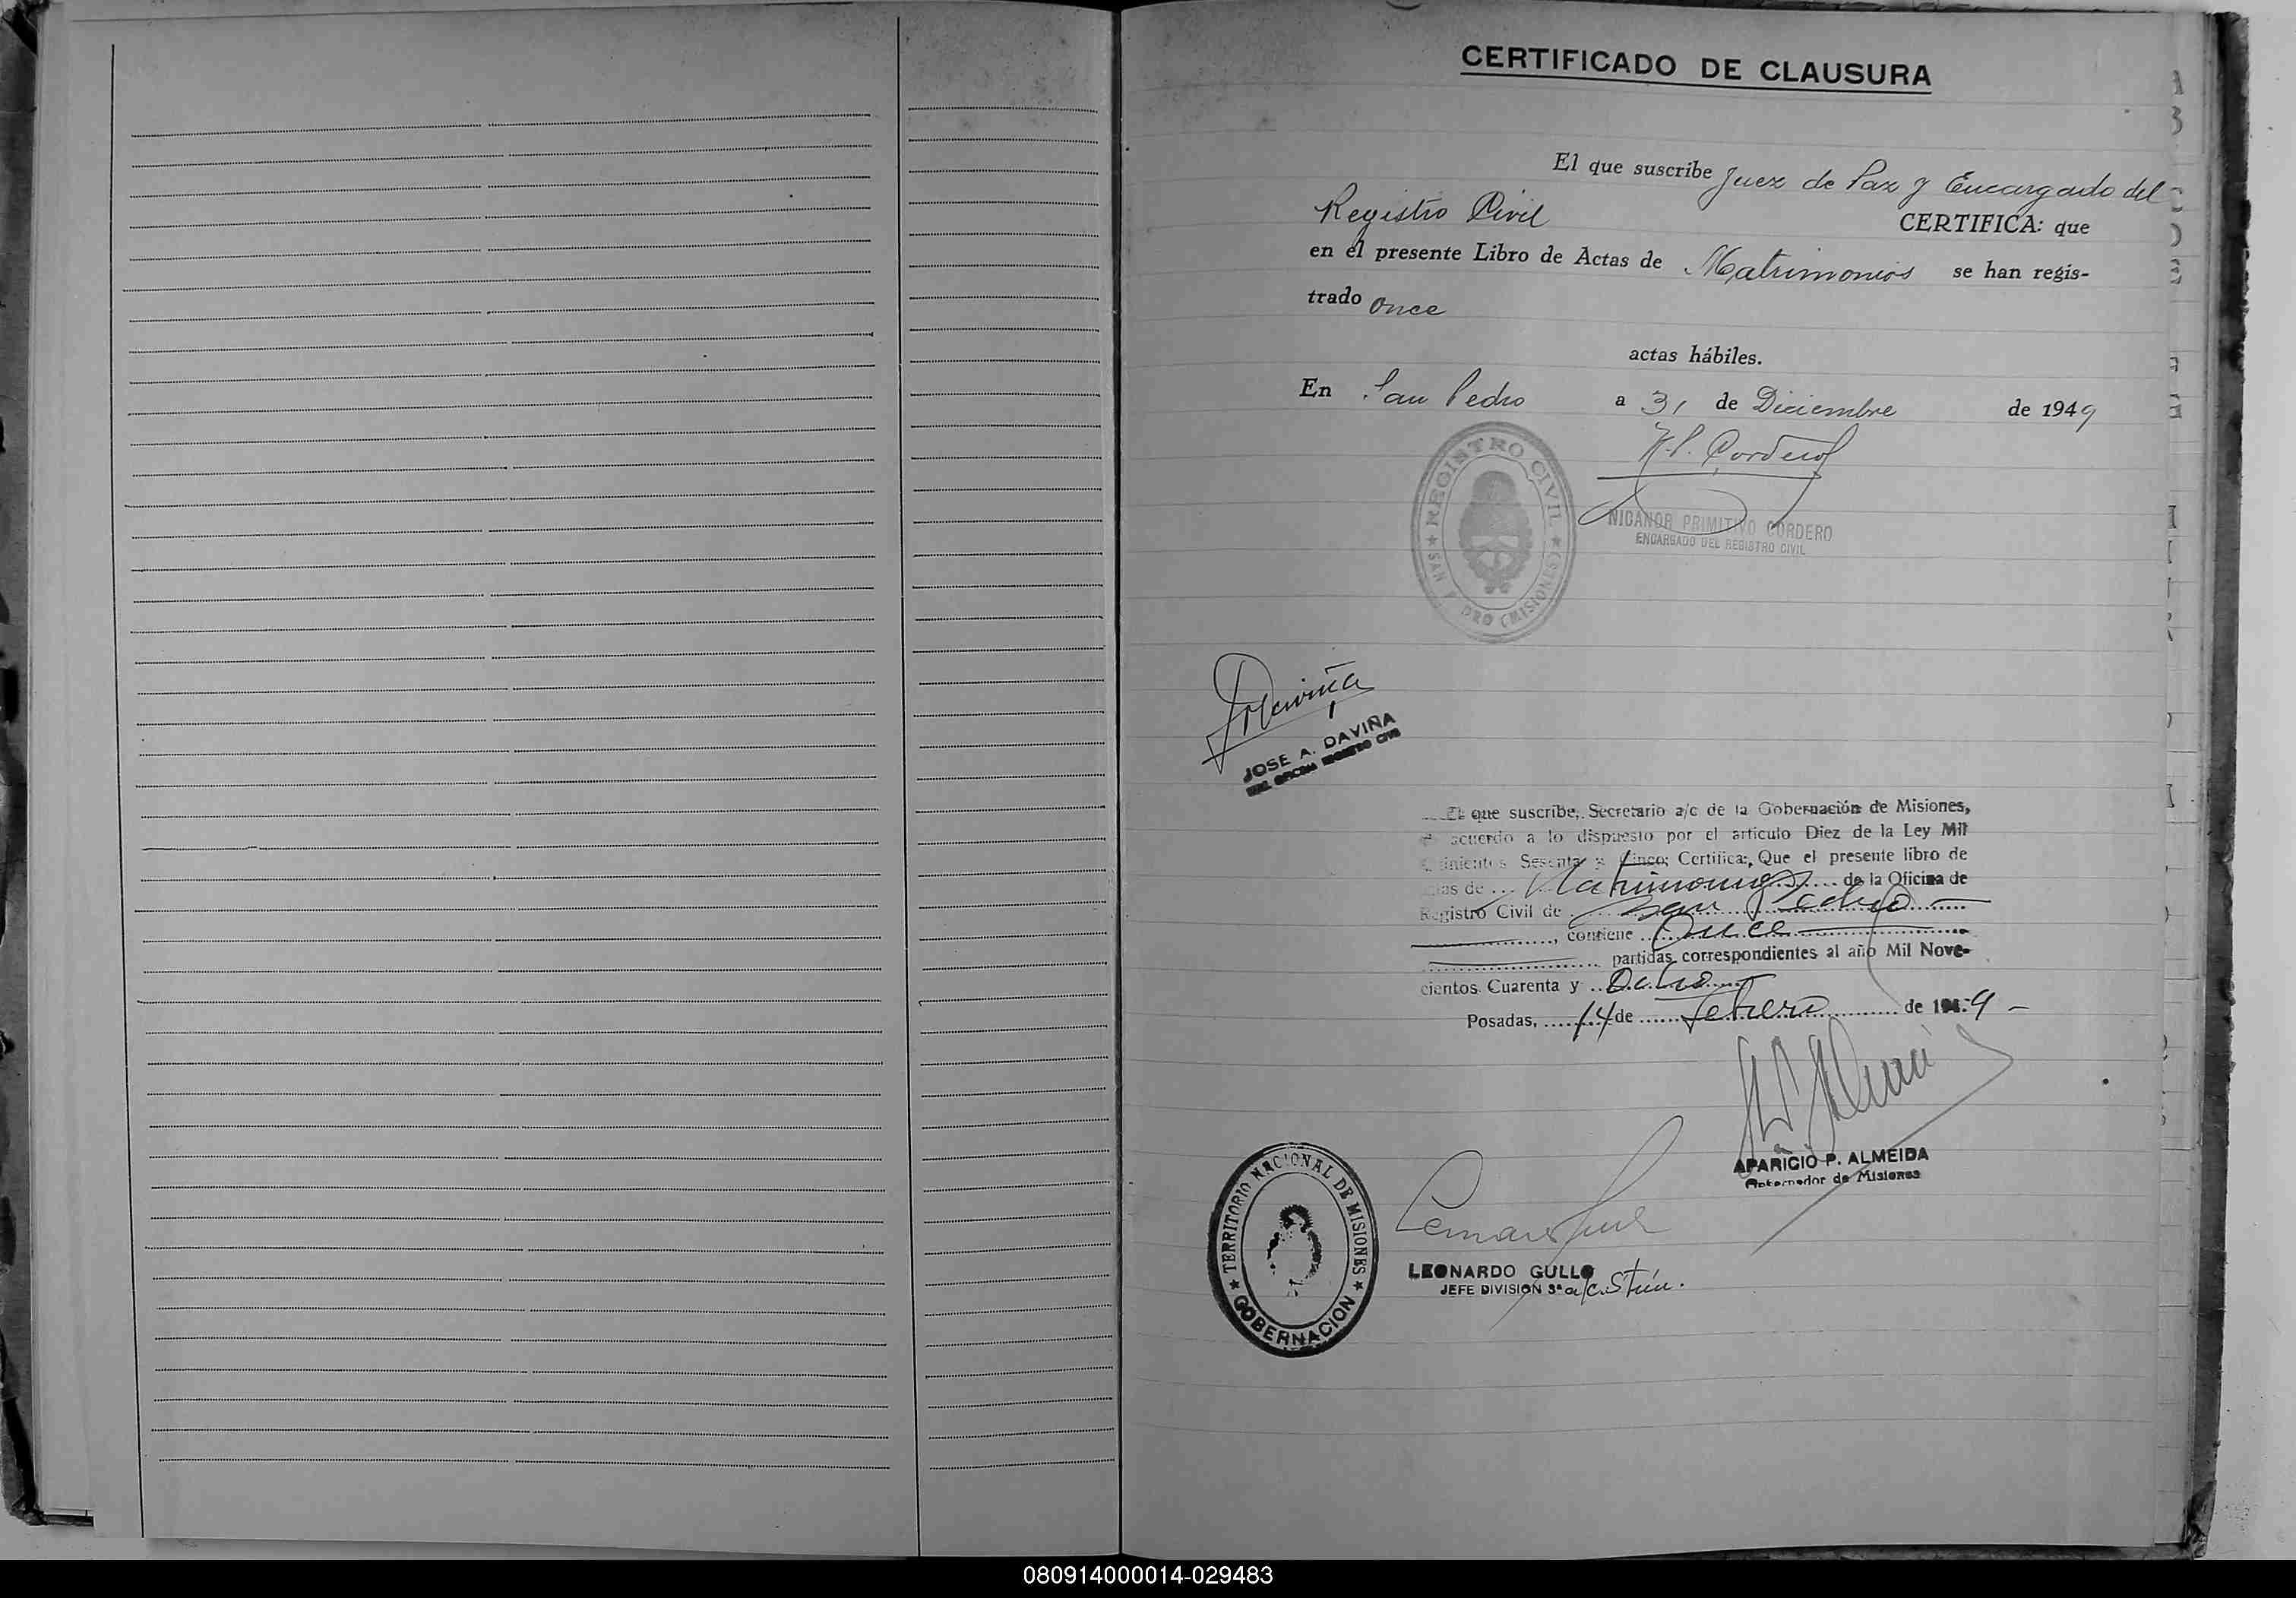 CERTIFICADO DE CLAUSURA
El que suscribe Juez de Paz y Encargado del
Registro Civil CERTIFICA: que
en el presente Libro de Actas de Matrimonios se han regis-
trado once
actas hábiles.
En San Pedro a 31 de Diciembre de 1949
N.P. Cordero
REGISTRO CIVIL
SAN PEDRO (MISIONES)
NICANOR PRIMITIVO CORDERO
ENCARGADO DEL REGISTRO CIVIL
Daviña
JOSE A. DAVIÑA
OFICINA REGISTRO CIVIL
El que suscribe, Secretario a/c de la Gobernación de Misiones,
de acuerdo a lo dispuesto por el artículo Diez de la Ley Mil
Quinientos Sesenta y Cinco; Certifica:, Que el presente libro de
Actas de Matrimonios de la Oficina de
Registro Civil de San Pedro
, contiene Once
partidas correspondientes al año Mil Nove-
cientos Cuarenta y Ocho
Posadas, 14 de febrero de 1949 -
APARICIO P. ALMEIDA
Gobernador de Misiones
TERRITORIO NACIONAL DE MISIONES
GOBERNACION
LEONARDO GULLO
JEFE DIVISIÓN 3ª a/c. Stría.
080914000014-029483